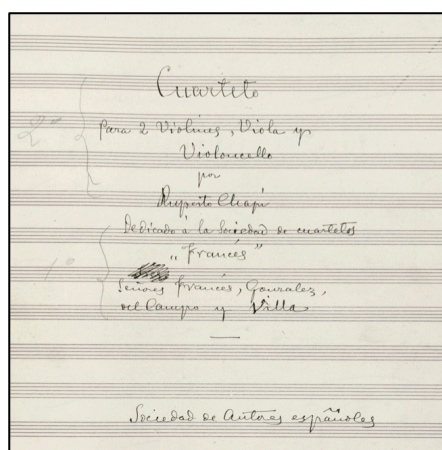 Cuarteto
2º
Para 2 Violines, Viola y
Violoncello
por
Ruperto Chapí
Dedicado à la Sociedad de cuartetos
"Francés"
1º
Señores Francés, Gonzalez,
del Campo y Villa
Sociedad de Autores españoles